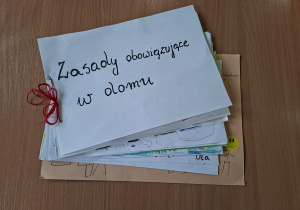 Zasady obowiązujące
w domu